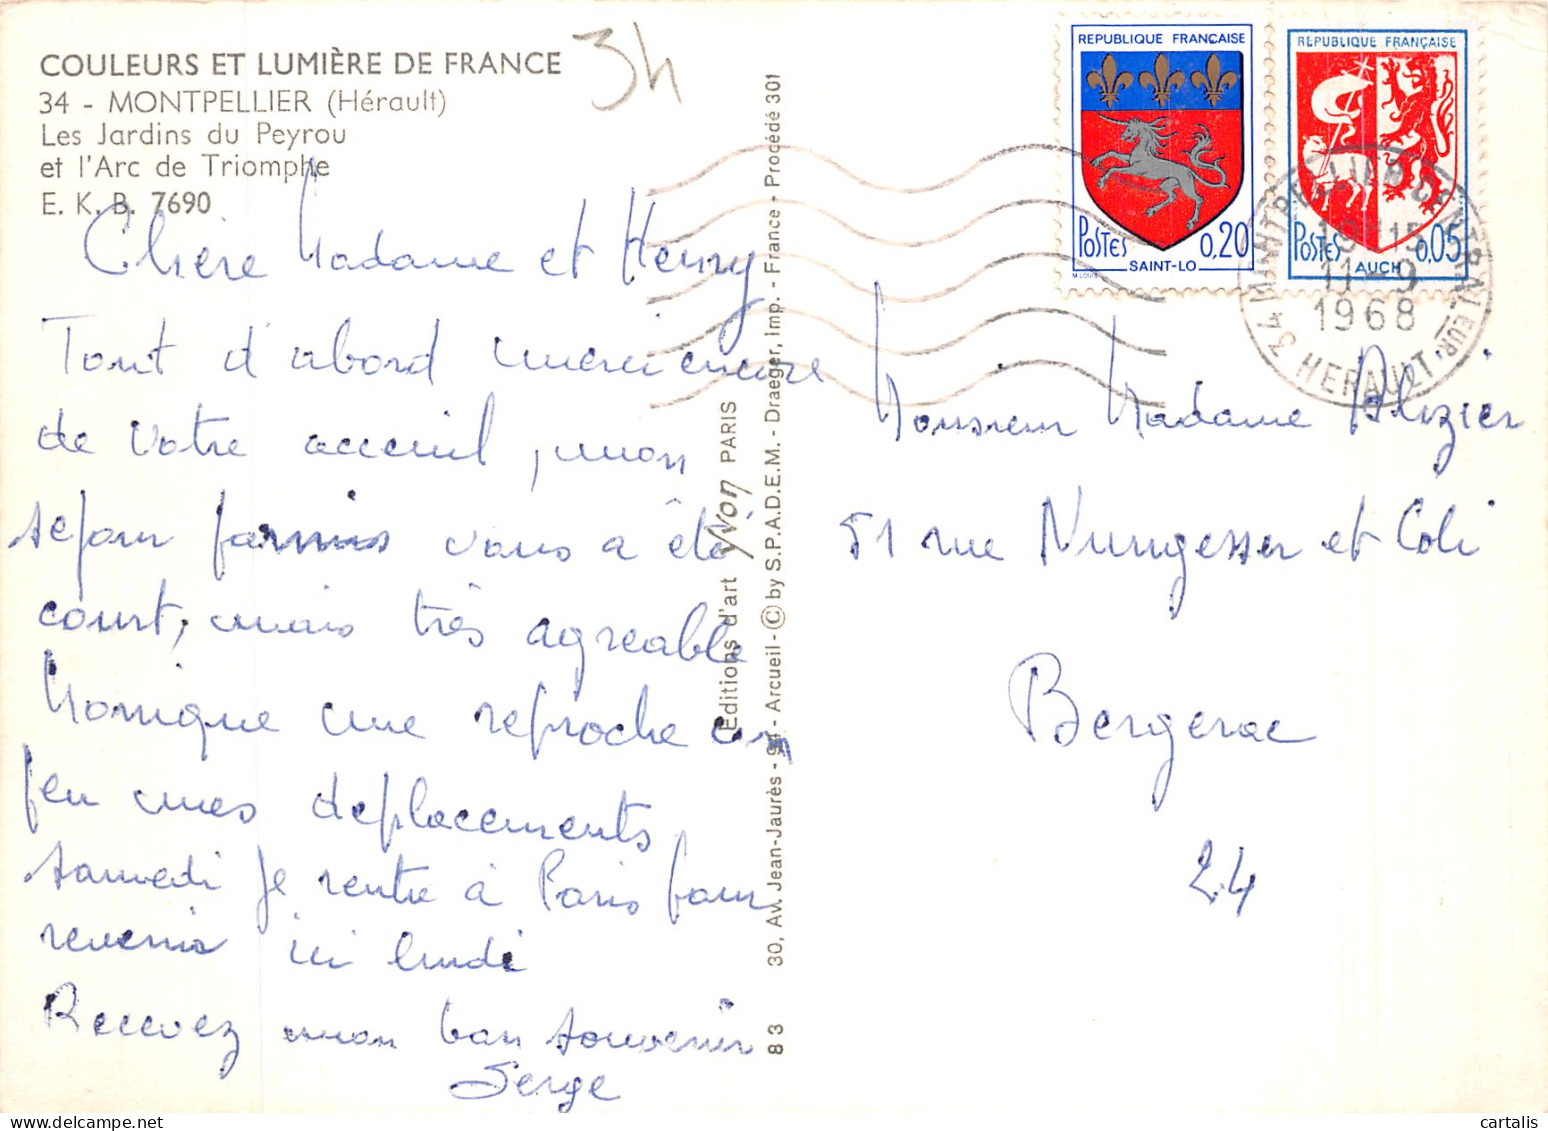 COULEURS ET LUMIÈRE DE FRANCE
34 - MONTPELLIER (Hérault)
Les Jardins du Peyrou
et l'Arc de Triomphe
E. K. B. 7690
34
Chère Madame et Henry
Tout d'abord merci encore
de votre acceuil, mon
sejour parmis vous a été
court, mais très agreable
Monique me reproche un
peu mes deplacements,
samedi je rentre à Paris pour
revenir ici lundi
Recevez mon bon souvenir
Serge
Editions d'art YVON PARIS
30, Av. Jean-Jaurès - 94 - Arcueil - © by S.P.A.D.E.M. - Draeger, Imp. - France - Procédé 301
83
REPUBLIQUE FRANÇAISE
POSTES 0,20
SAINT-LO
M. LOUIS
REPUBLIQUE FRANÇAISE
POSTES 0,05
AUCH
34 MONTPELLIER CENTRALEUR
19 H 15
11 - 9
1968
HERAULT
Monsieur Madame Blizier
51 rue Nungesser et Coli
Bergerac
24
cartalis | www.delcampe.net